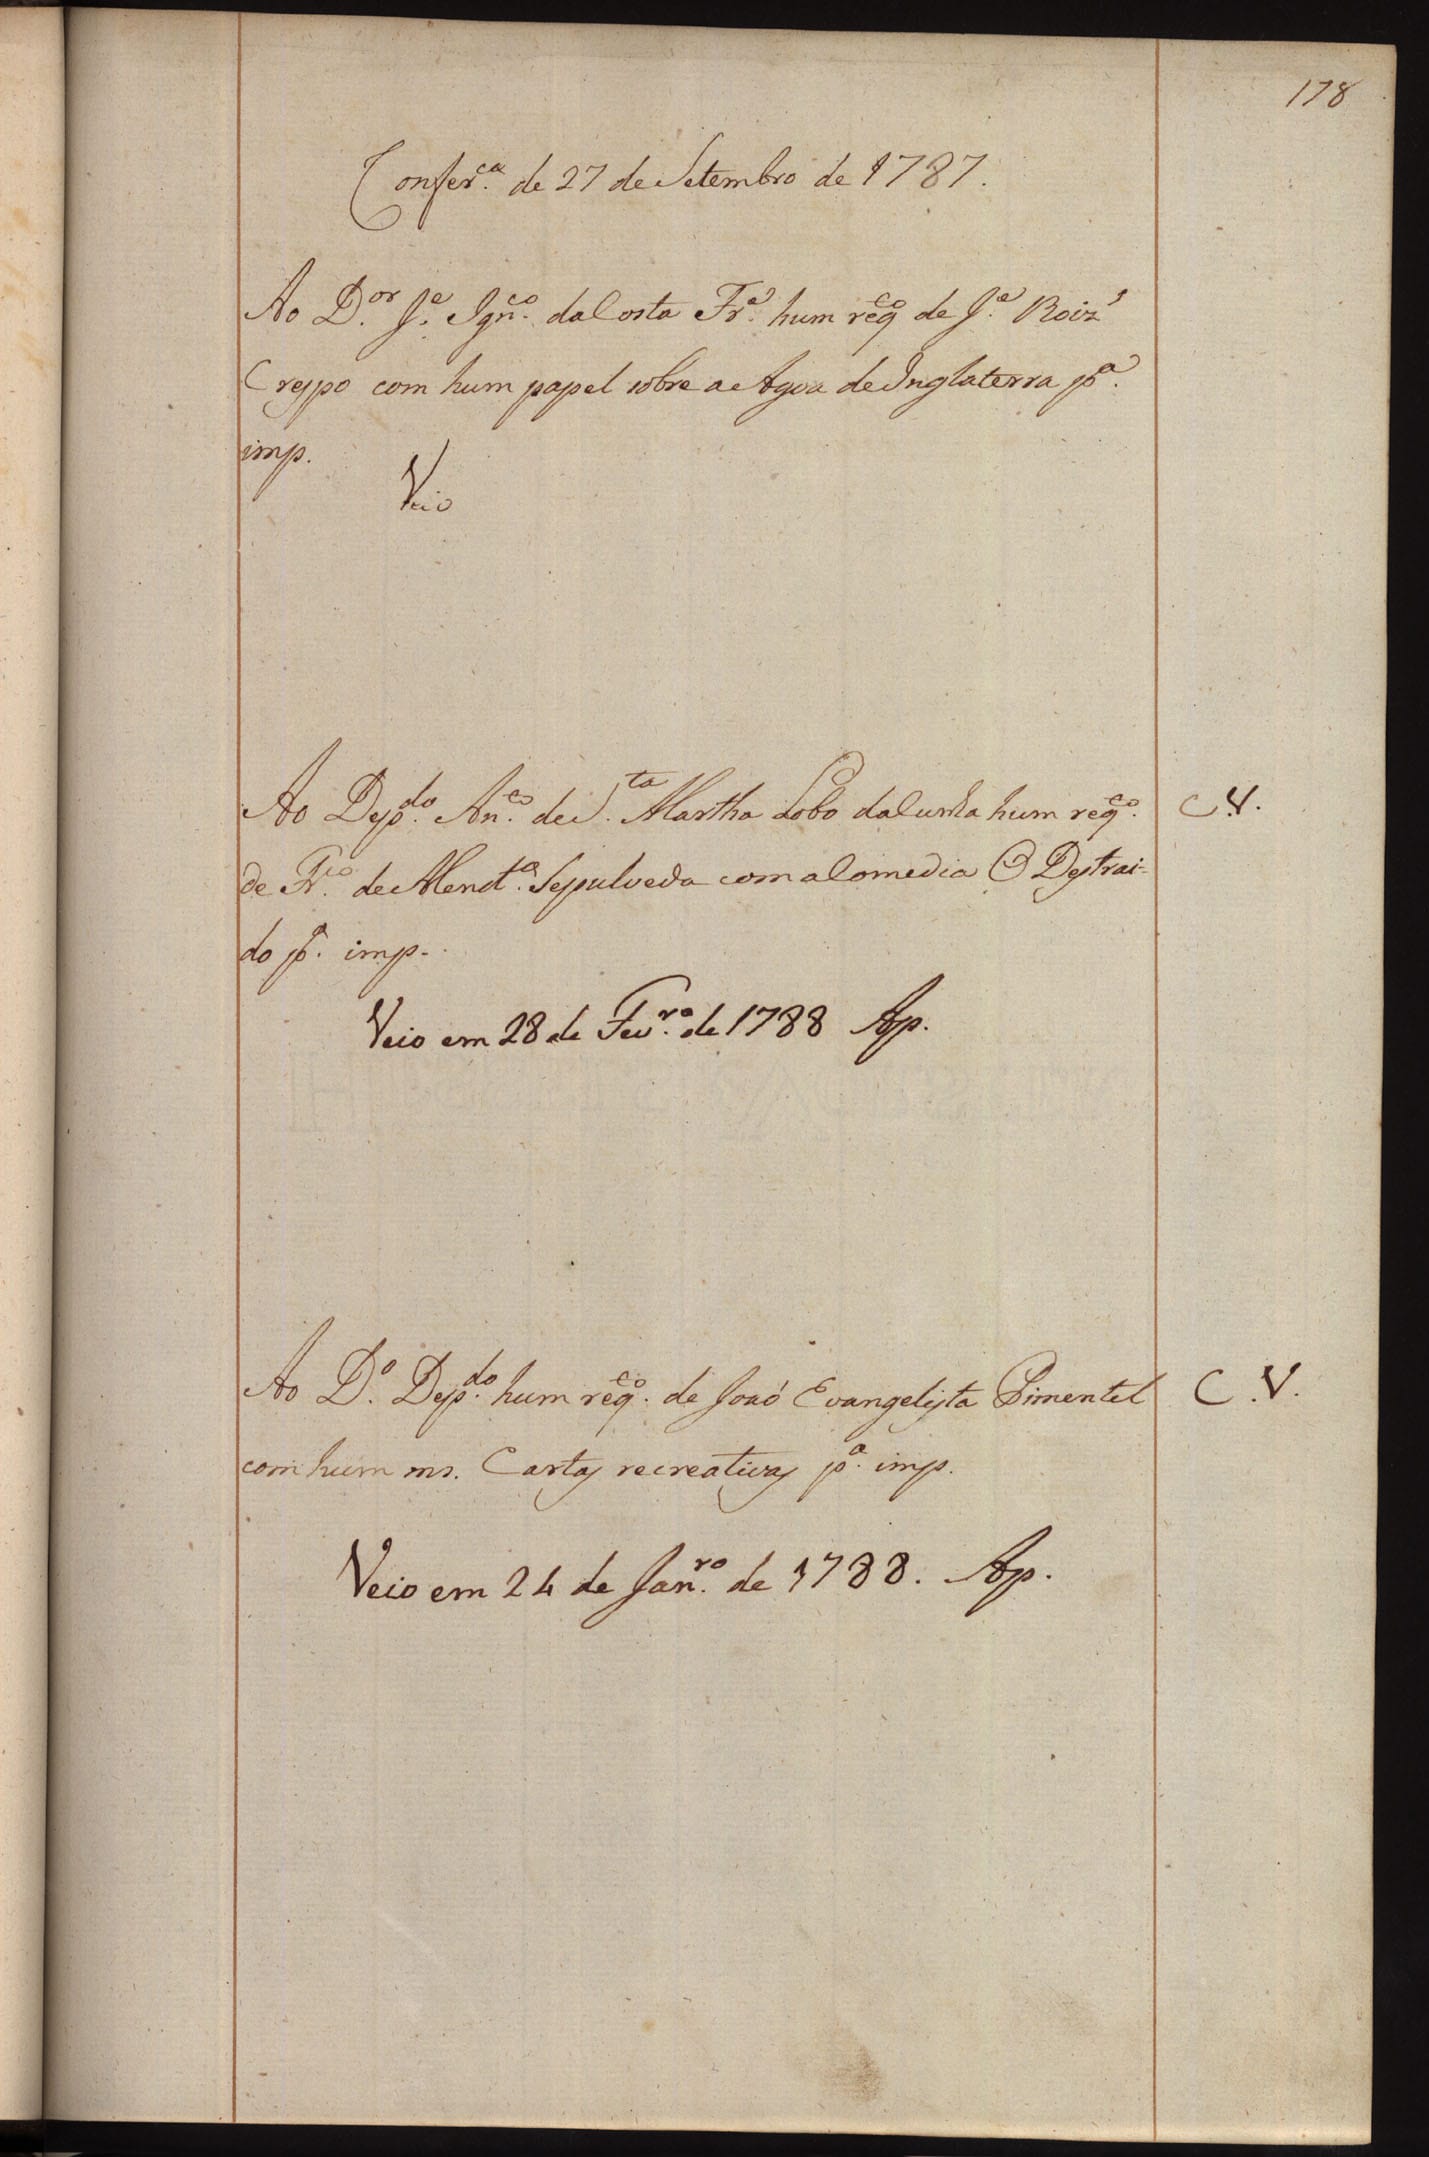 178
Confer.ca de 27 de Setembro de 1787.
Ao D.or J.e Ign.co da Costa Fr.a hum req.co de J.e Roiz'
Crespo com hum papel sobre a Agoa de Inglaterra p.a
imp.
Veio
Ao Dep.do An.co de S.ta Martha Lobo da Cunha hum req.co C.V.
de Fr.co de Mend.ca Sepulveda com a Comedia O Destrai-
do p.a imp.
Veio em 28 de Fev.ro de 1788 Ap.
Ao D.o Dep.do hum req.co de Joaó Evangelista Pimentel C.V.
com hum ms. Cartas recreativas p.a imp.
Veio em 24 de Jan.ro de 1788. Ap.